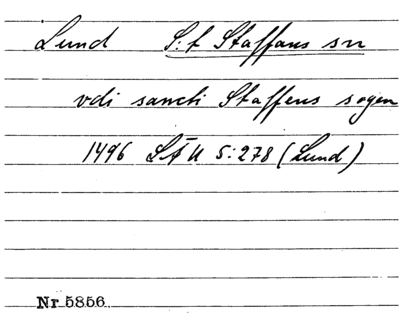 Lund S:t Staffans sn
vdi sancti Staffens sogen
1496 LÄU 5:278 (Lund)
Nr 5856